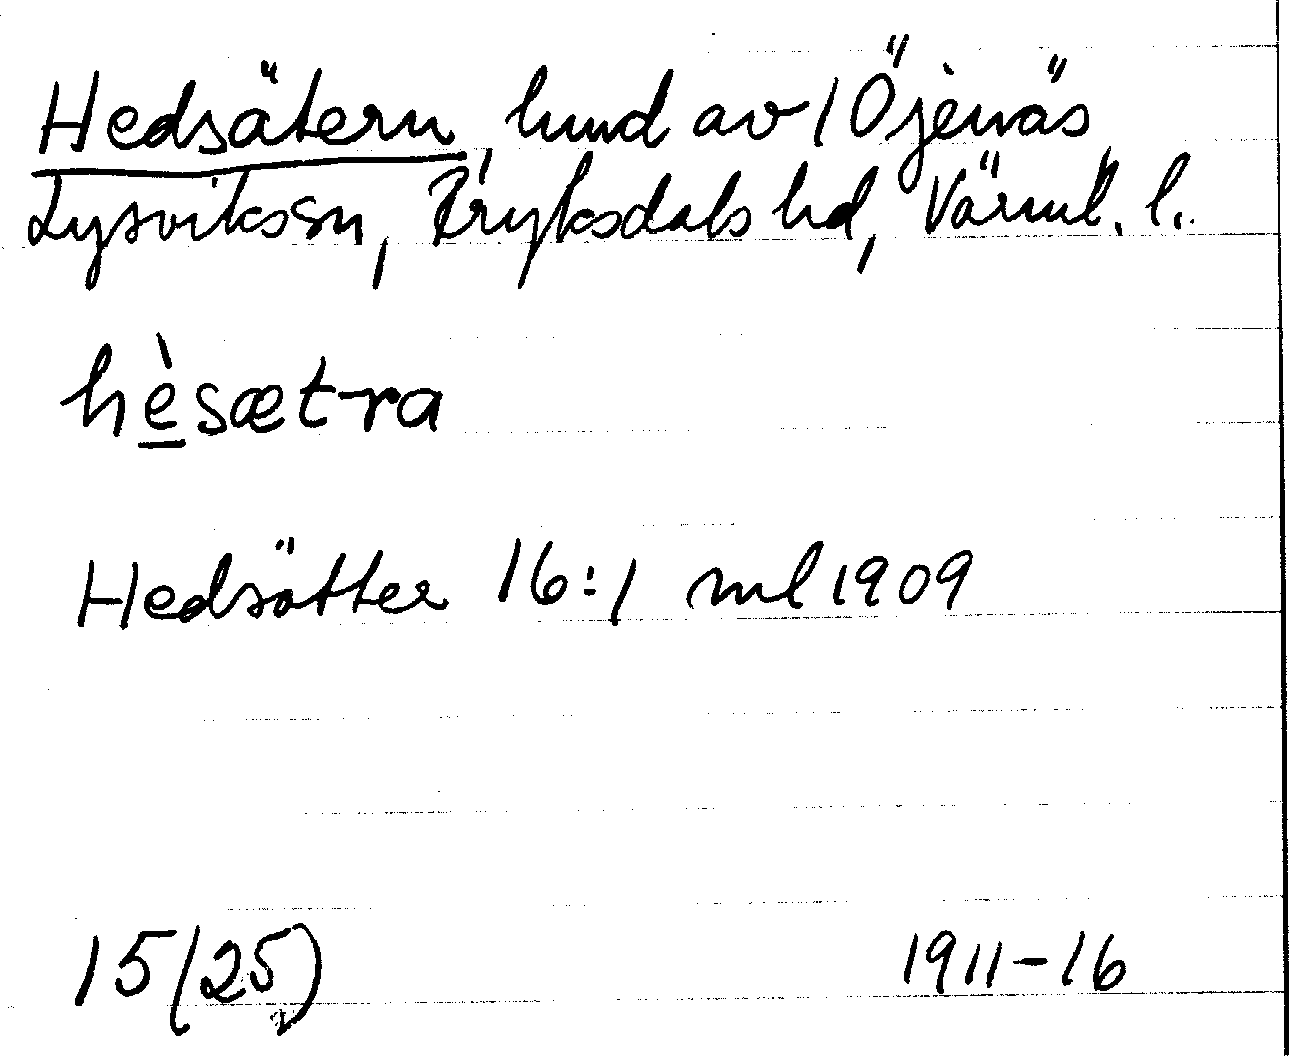 Hedsätern, hmd av 1 Öjenäs
Lysvikssn, Fryksdals hd, Värml. l.
hèsætra
Hedsätter 16:1 ml 1909
15(25)
1911-16